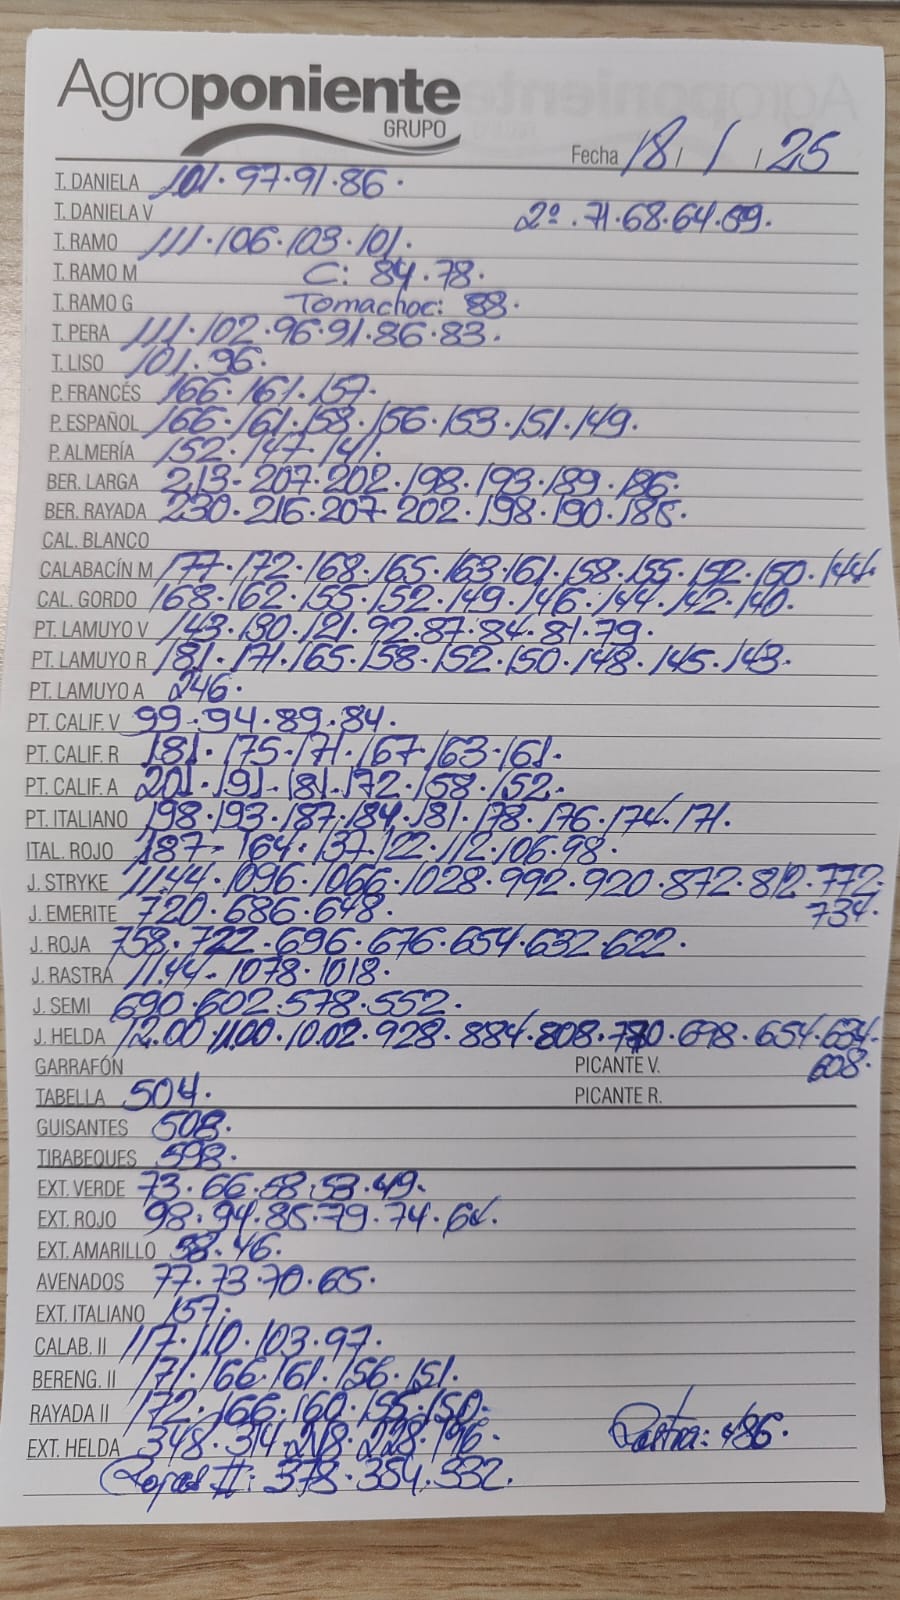 Agroponiente
GRUPO
Fecha 18 / 1 / 25
T. DANIELA 101. 97. 91. 86.
T. DANIELA V 2º. 71. 68. 64. 59.
T. RAMO 111. 106. 103. 101.
T. RAMO M C: 84. 78.
T. RAMO G Tomachoc: 88.
T. PERA 111. 102. 96. 91. 86. 83.
T. LISO 101. 96.
P. FRANCÉS 166. 161. 157.
P. ESPAÑOL 166. 161. 158. 156. 153. 151. 149.
P. ALMERÍA 152. 147. 141.
BER. LARGA 213. 207. 202. 198. 193. 189. 186.
BER. RAYADA 230. 216. 207. 202. 198. 190. 185.
CAL. BLANCO
CALABACÍN M 177. 172. 168. 165. 163. 161. 158. 155. 152. 150. 144.
CAL. GORDO 168. 162. 155. 152. 149. 146. 144. 142. 140.
PT. LAMUYO V 143. 130. 121. 92. 87. 84. 81. 79.
PT. LAMUYO R 181. 171. 165. 158. 152. 150. 148. 145. 143.
PT. LAMUYO A 246.
PT. CALIF. V 99. 94. 89. 84.
PT. CALIF. R 181. 175. 171. 167. 163. 161.
PT. CALIF. A 201. 191. 181. 172. 158. 152.
PT. ITALIANO 198. 193. 187. 184. 181. 178. 176. 174. 171.
ITAL. ROJO 187. 164. 137. 122. 112. 106. 98.
J. STRYKE 11.44. 1096. 1066. 1028. 992. 920. 872. 812. 772.
734.
J. EMERITE 720. 686. 648.
J. ROJA 758. 722. 696. 676. 654. 632. 622.
J. RASTRA 11.44. 1078. 1018.
J. SEMI 690. 602. 578. 552.
J. HELDA 12.00. 11.00. 10.02. 928. 884. 808. 698. 654. 634.
608.
GARRAFÓN PICANTE V.
TABELLA 504. PICANTE R.
GUISANTES 508.
TIRABEQUES 598.
EXT. VERDE 73. 66. 58. 53. 49.
EXT. ROJO 98. 94. 85. 79. 74. 64.
EXT. AMARILLO 58. 46.
AVENADOS 77. 73. 70. 65.
EXT. ITALIANO 157.
CALAB. II 117. 110. 103. 97.
BERENG. II 171. 166. 161. 156. 151.
RAYADA II 172. 166. 160. 155. 150.
EXT. HELDA 348. 314. 228. 196. Rastra: 486.
Rojas II: 378. 354. 332.